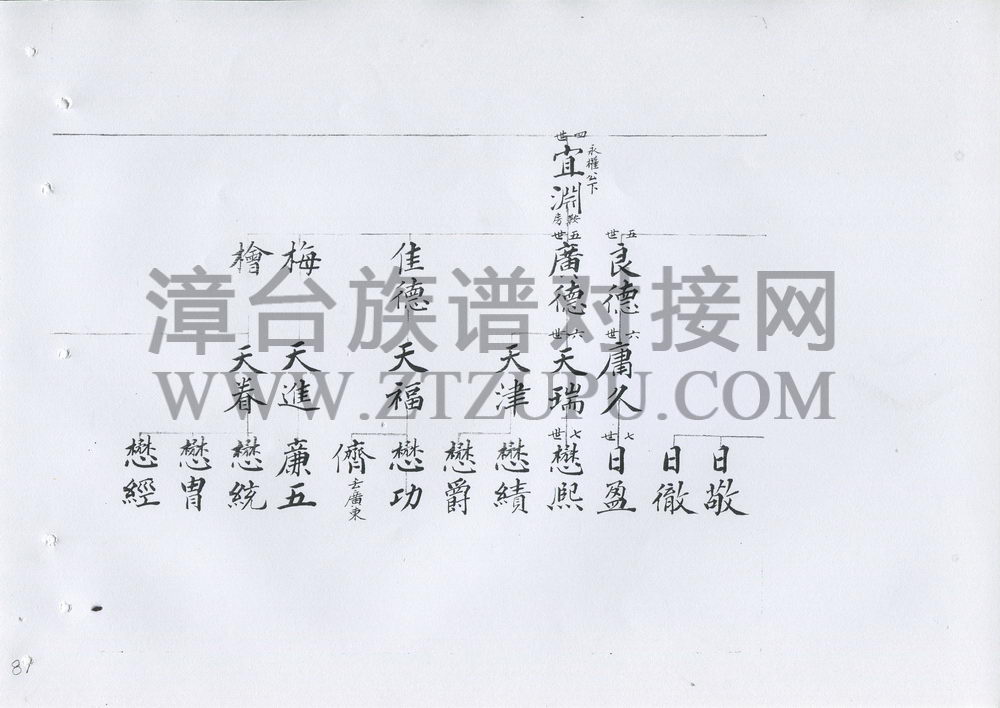 四世
宜淵
永權公下
五世
良德
五世
廣德
佳德
梅
檜
六世
庸久
六世
天瑞
天津
天福
天進
天眷
日敬
日徹
七世
日盈
七世
懋熙
懋績
懋爵
懋功
儕
去廣東
廉五
懋統
懋胄
懋經
81
漳台族谱对接网
WWW.ZTZUPU.COM